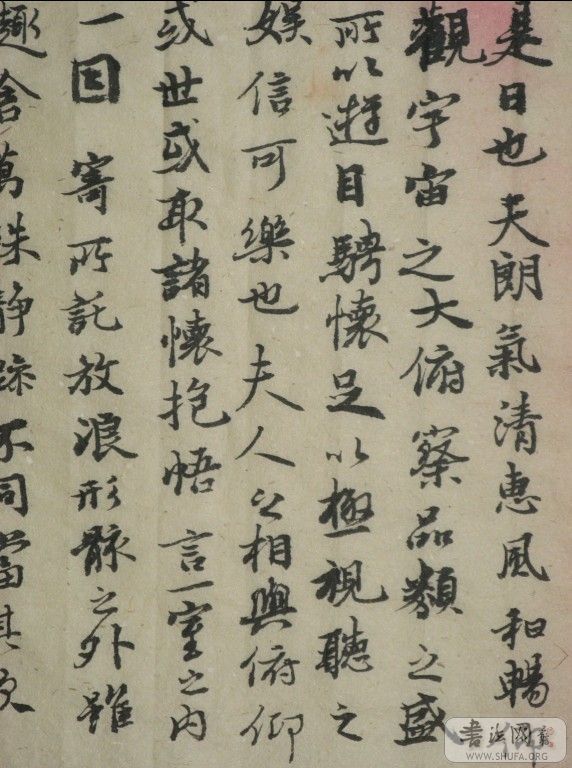 是日也天朗氣清惠風和暢仰
觀宇宙之大俯察品類之盛
所以遊目騁懷足以極視聽之
娛信可樂也夫人之相與俯仰
或世或取諸懷抱悟言一室之內
一因寄所託放浪形骸之外雖
趣舍萬殊靜躁不同當其欣
WWW.SHUFA.ORG